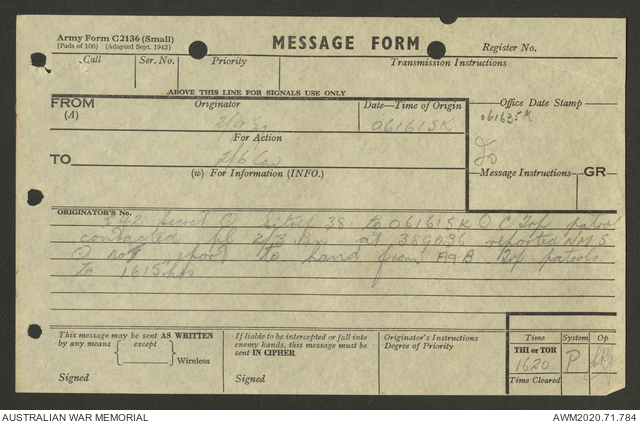 Army Form C2136 (Small)
(Pads of 100) (Adapted Sept. 1943)
MESSAGE FORM
Register No.
Call Ser. No. Priority Transmission Instructions
ABOVE THIS LINE FOR SIGNALS USE ONLY
FROM Originator Date—Time of Origin Office Date Stamp
(A) 2/9 061615K 061635K
For Action
TO 2/6 Cav
(w) For Information (INFO.) Message Instructions GR
ORIGINATOR'S No.
142 Secret O Sitrep 38 to 061615K O C Trp patrol
contacted pl 2/3 Bn at 389036 reported NMS
O not report to hand from A & B Trp patrols
To 1615 hrs
This message may be sent AS WRITTEN
by any means except
Wireless
Signed
If liable to be intercepted or fall into
enemy hands, this message must be
sent IN CIPHER
Signed
Originator's Instructions
Degree of Priority
Time System Op
THI or TOR
1620 P
Time Cleared
AUSTRALIAN WAR MEMORIAL AWM2020.71.784